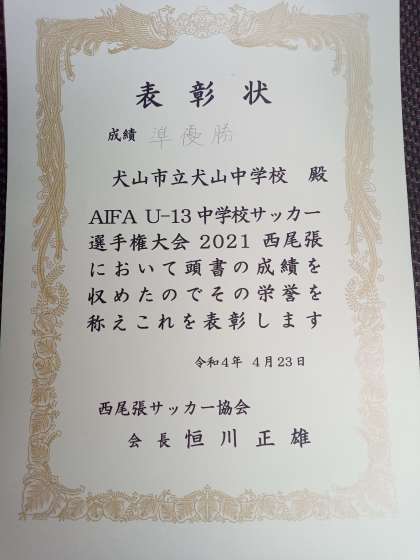 表彰状
成績 準優勝
犬山市立犬山中学校 殿
AIFA U-13 中学校サッカー
選手権大会 2021 西尾張
において頭書の成績を
収めたのでその栄誉を
称えこれを表彰します
令和4年 4月23日
西尾張サッカー協会
会長 恒川正雄